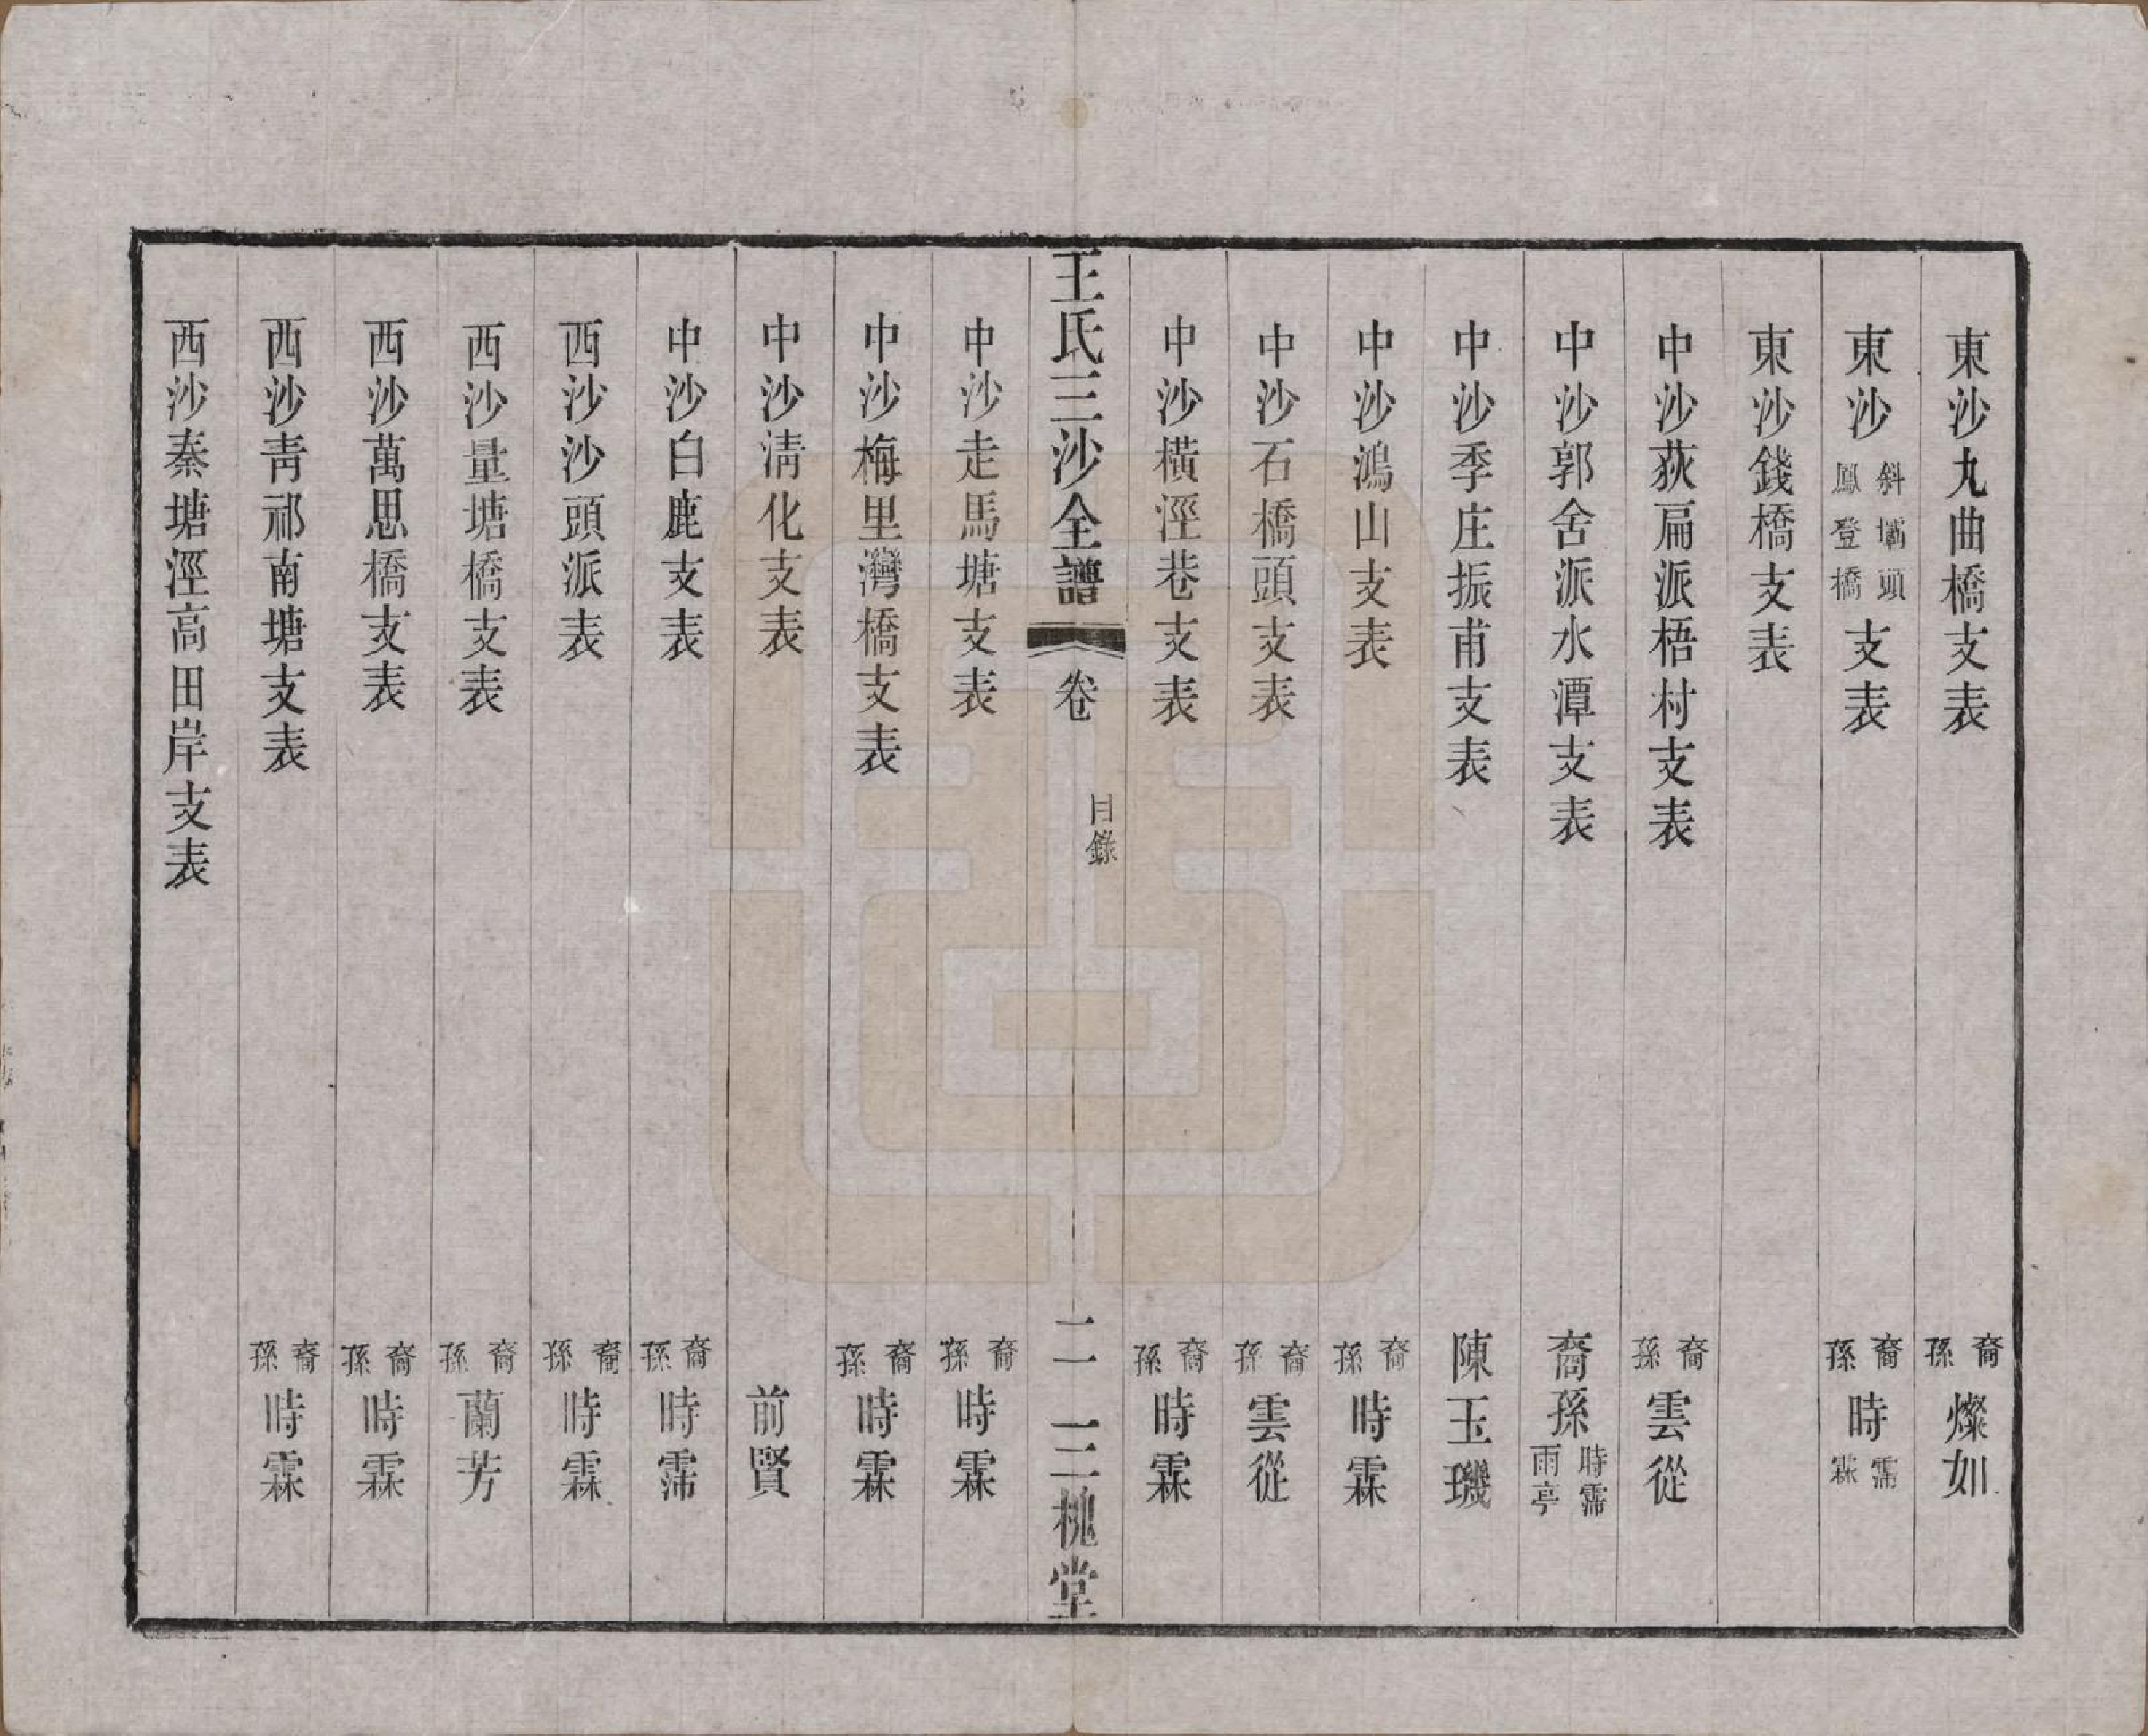 東沙九曲橋支表 裔孫燦如
東沙斜壩頭鳳登橋支表 裔孫時霈霖
東沙錢橋支表
中沙荻扁派梧村支表 裔孫雲從
中沙郭舍派水潭支表 裔孫時霈雨亭
中沙季庄振甫支表 陳玉璣
中沙鴻山支表 裔孫時霖
中沙石橋頭支表 裔孫雲從
中沙橫涇巷支表 裔孫時霖
王氏三沙全譜 卷 目錄 二 三槐堂
中沙走馬塘支表 裔孫時霖
中沙梅里灣橋支表 裔孫時霖
中沙清化支表 前賢
中沙白鹿支表 裔孫時霈
西沙沙頭派表 裔孫時霖
西沙量塘橋支表 裔孫蘭芳
西沙萬思橋支表 裔孫時霖
西沙青祁南塘支表 裔孫時霖
西沙秦塘涇高田岸支表